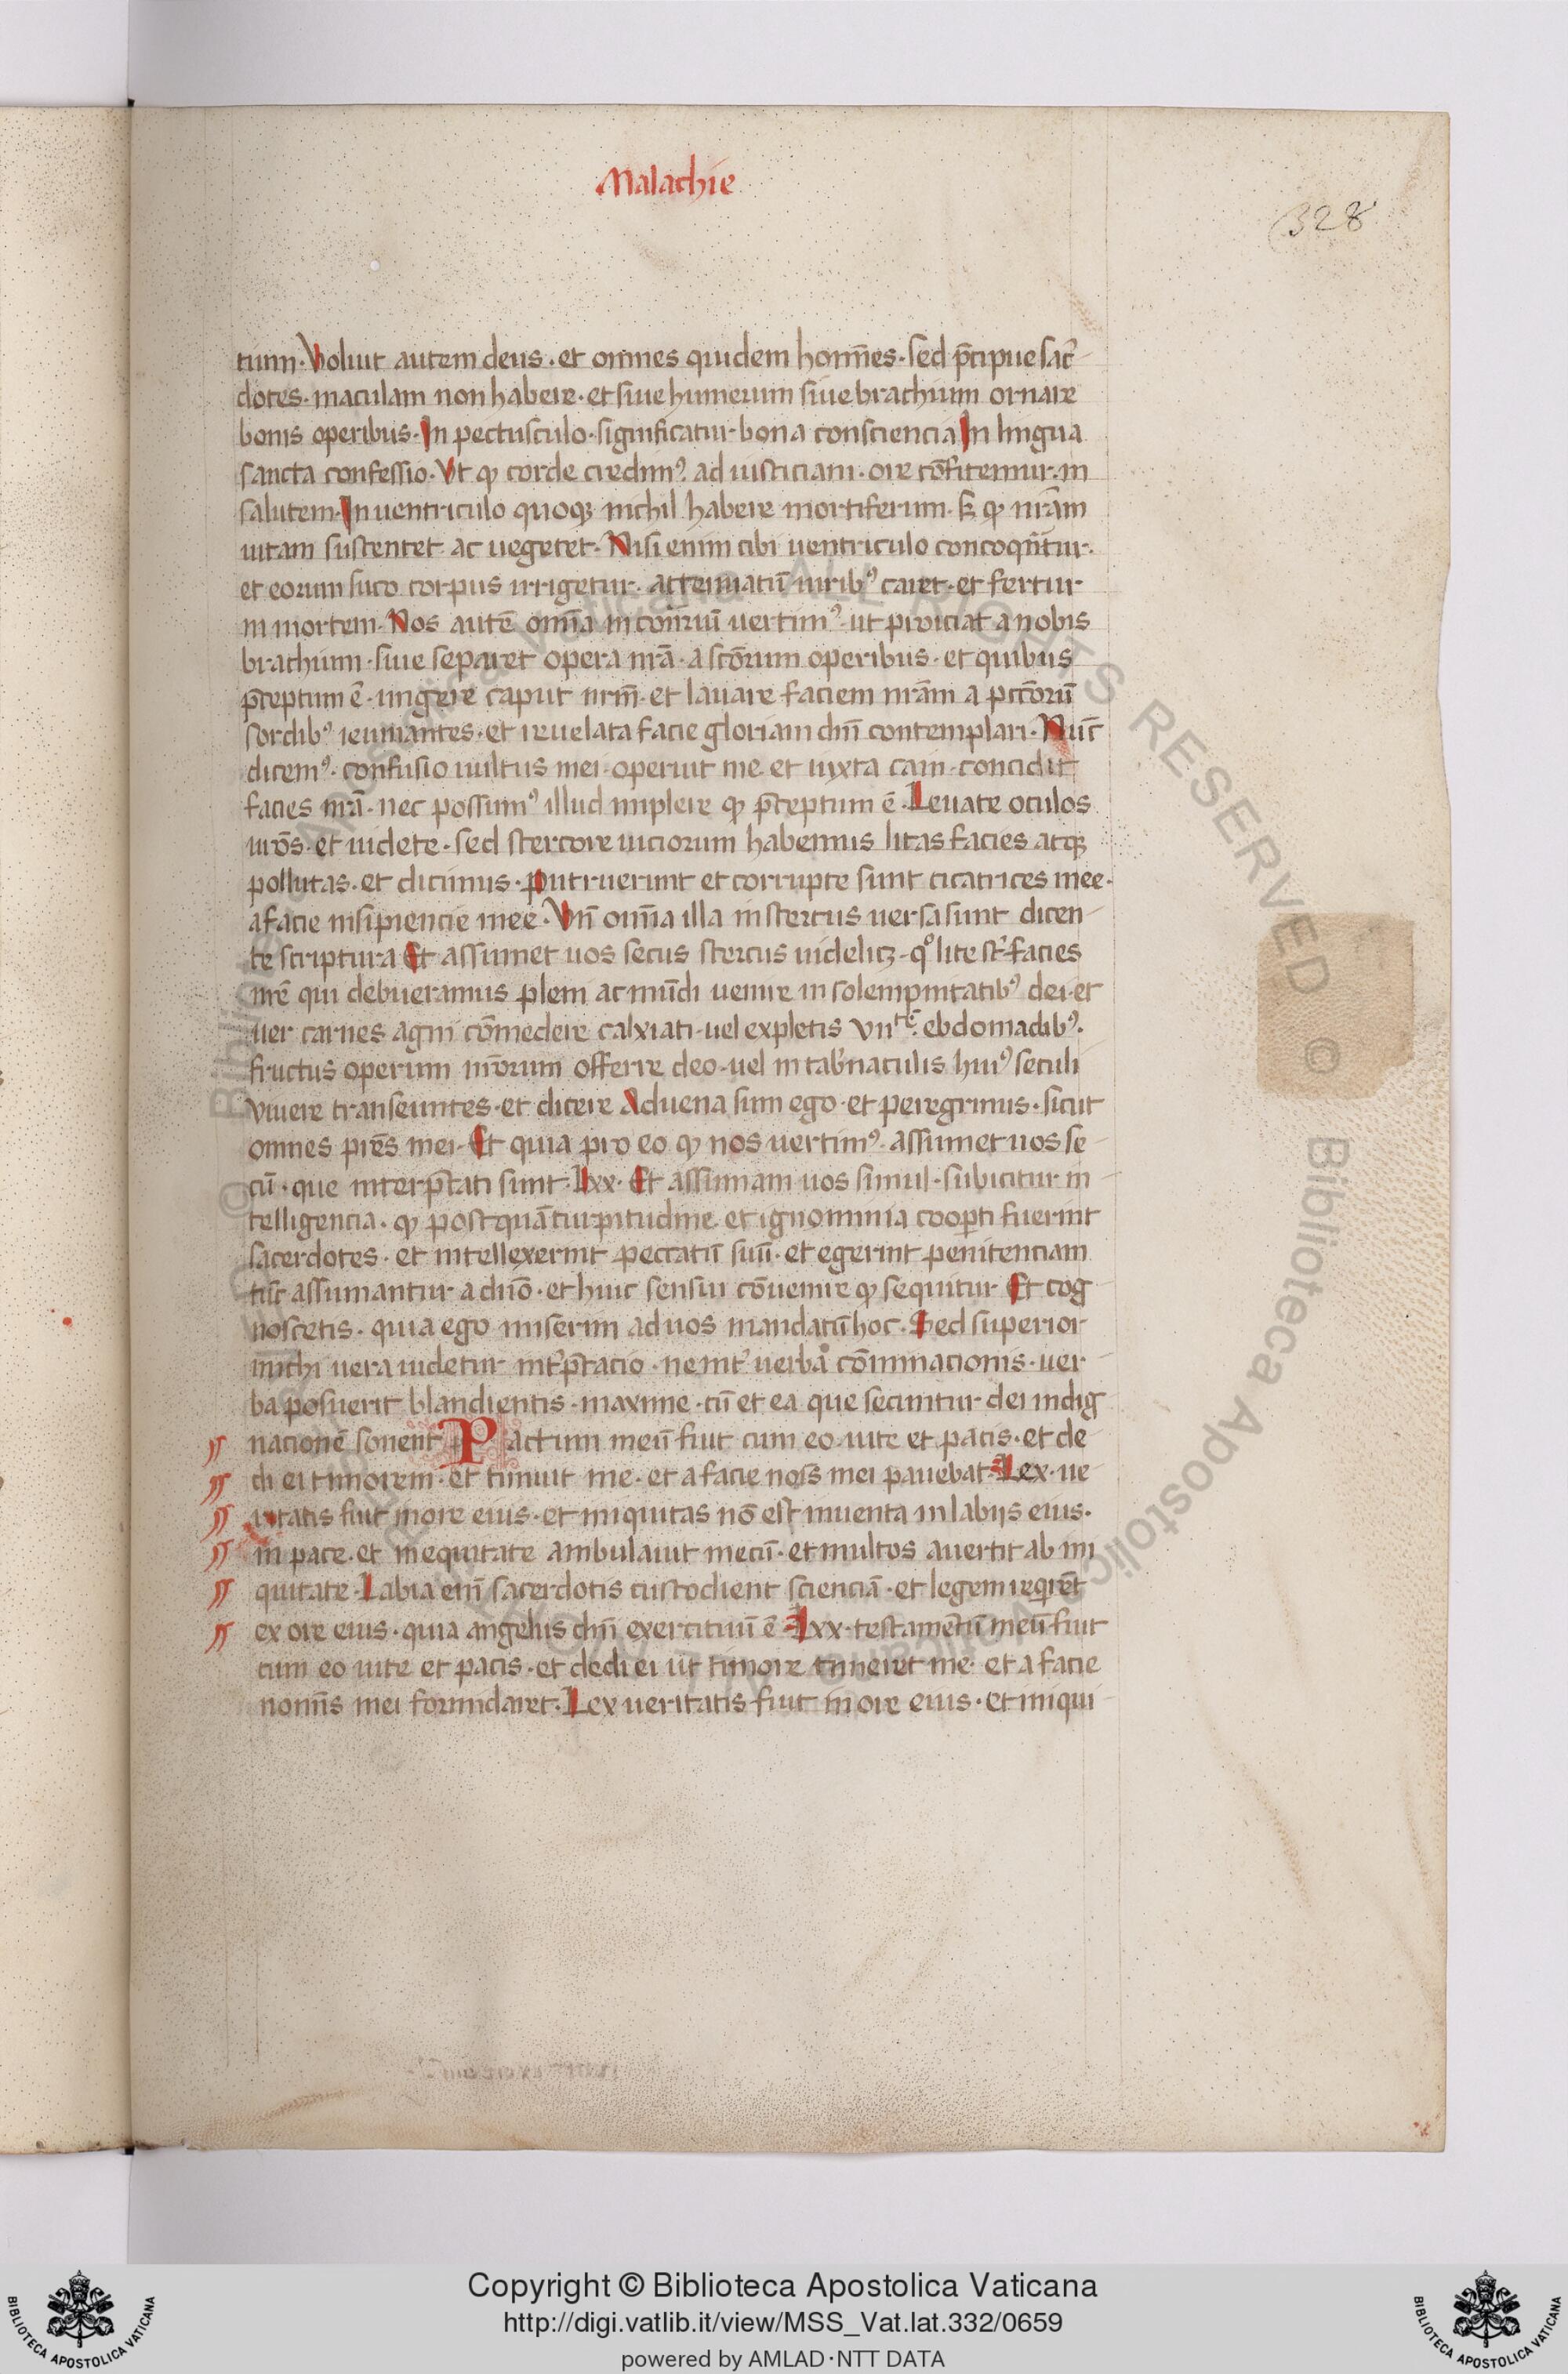 Malachie
328
tum. Voluit autem deus. et omnes quidem homīes. sed p̄cipue sac̄
dotes. maculam non habere. et siue humerum siue brachium ornare
bonis operibus. In pectusculo. significatur bona consciencia In lingua
sancta confessio. Vt qꝫ corde credimꝰ ad iusticiam. ore cōfitemur. in
salutem. In uentriculo quoqꝫ nichil habere mortiferum. sꝫ qꝫ nr̄am
uitam sustentet ac uegetet. Nisi enim cibi uentriculo concoqn̄tur.
et eorum suco corpus irrigetur. attenuatū uiribꝰ caret. et fertur
in mortem. Nos autē omīa in cont̄riū uertimꝰ. ut proiciat a nobis
brachium. siue separet opera nr̄a. a sc̄orum operibus. et quibus
p̄ceptum ē. ungere caput nr̄m. et lauare faciem nr̄am a pcc̄orū
sordibꝰ ieiunantes. et reuelata facie gloriam dn̄i contemplari. Nūc
dicemꝰ. confusio uultus mei operuit me. et iuxta cain. concidit
facies nr̄a. nec possumꝰ illud implere qꝫ p̄ceptum ē. Leuate oculos
ur̄os. et uidete. sed stercore uiciorum habemus litas facies atqꝫ
pollutas. et dicimus. putruerunt et corrupte sunt cicatrices mee.
a facie insipiencie mee. Vn̄ omīa illa in stercus uersa sunt dicen-
te scriptura Et assumet uos secus stercus uidelicꝫ. qͦ lite st̄ facies
nr̄e qui debueramus ꝑ lem ac mūdi uenire in solempnitatibꝰ dei. et
uer carnes agni cōmedere calxiati. uel expletis viiᵗᵉ. ebdomadibꝰ.
fructus operum nr̄orum offerre deo. uel in tab̄naculis huiꝰ seculi
viuere transeuntes. et dicere Aduena sum ego. et peregrinus. sicut
omnes pr̄es mei. Et quia pro eo qꝫ nos uertimꝰ. assumet uos se-
cū. que interp̄tati sunt. lxx. Et assumam uos simul. subicitur in-
telligencia. qꝫ postquā turpitudine et ignominia cooꝑti fuerint
sacerdotes. et intellexerint peccatū suū. et egerint penitenciam
tūc assumantur a dn̄o. et huic sensui cōuenire qꝫ sequitur Et cog
noscetis. quia ego miserim ad uos mandatū hoc. Sed superior
michi uera uidetur int̄p̄tacio. ne int̄ uerba cōminacionis. uer-
ba posuerit blandientis. maxime. cū et ea que secuntur dei indig
nacionē sonent Pactum meū fuit cum eo uite et pacis. et de-
di ei timorem. et timuit me. et a facie nois̄ mei pauebat. Lex. ue-
ritatis fuit in ore eius. et iniquitas nō est inuenta in labijs eius.
in pace. et in equitate ambulauit mecū. et multos auertit ab ini
quitate. Labia enī sacerdotis custodient scienciā. et legem reqrent̄
ex ore eius. quia angelus dn̄i exercituū ē. Lxx. testamentū meū fuit
cum eo uite et pacis. et dedi ei ut timore timeret me. et a facie
nomīs mei formidaret. Lex ueritatis fuit in ore eius. et iniqui-
Copyright © Biblioteca Apostolica Vaticana
http://digi.vatlib.it/view/MSS_Vat.lat.332/0659
powered by AMLAD·NTT DATA
BIBLIOTECA APOSTOLICA VATICANA
BIBLIOTECA APOSTOLICA VATICANA